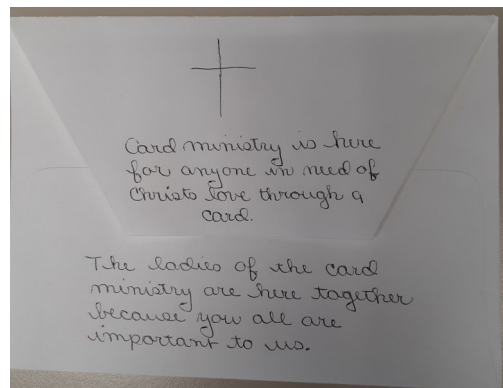 Card ministry is here
for anyone in need of
Christs love through a
card.
The ladies of the card
ministry are here together
because you all are
important to us.